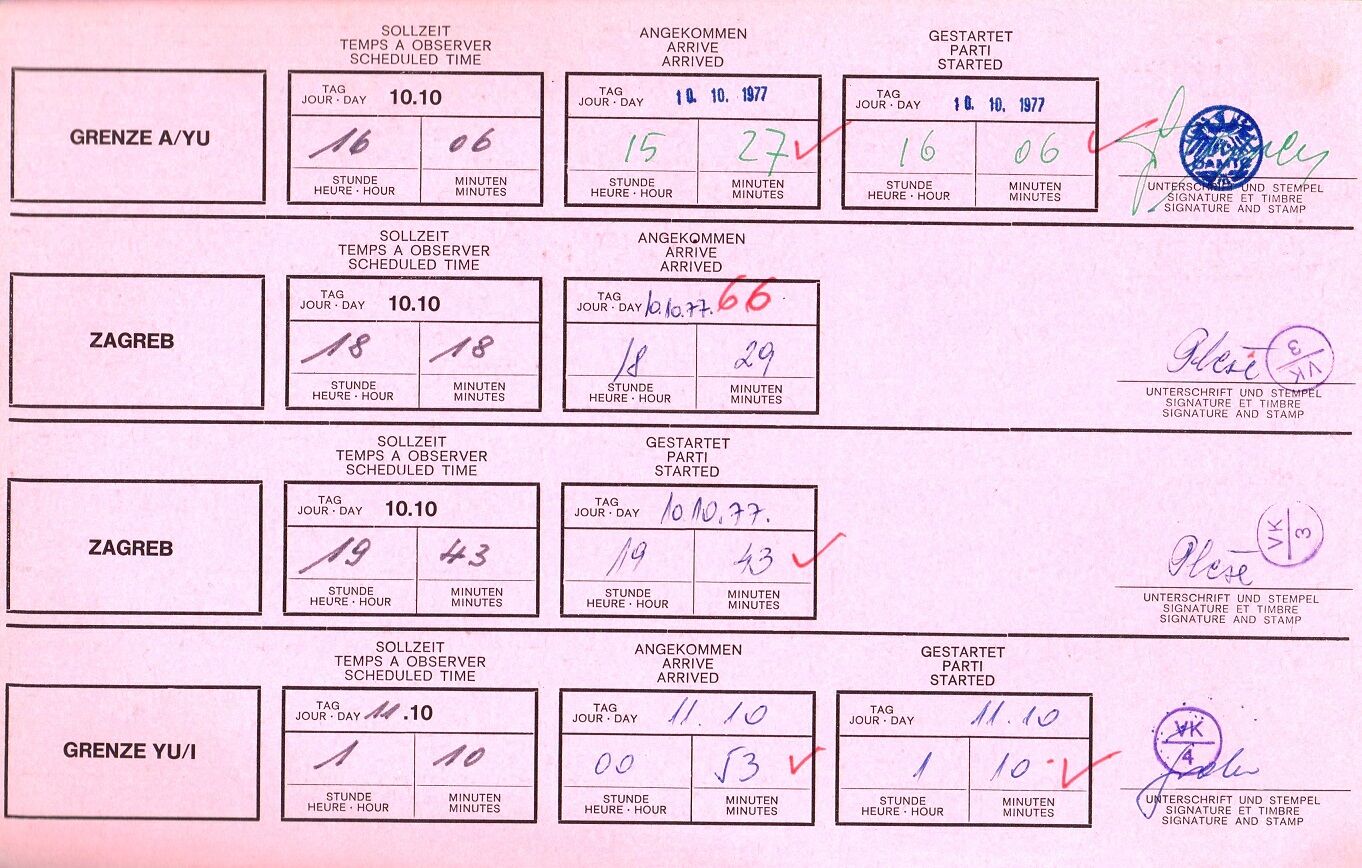 SOLLZEIT
TEMPS A OBSERVER
SCHEDULED TIME
ANGEKOMMEN
ARRIVE
ARRIVED
GESTARTET
PARTI
STARTED
GRENZE A/YU
TAG
JOUR · DAY 10.10
16 06
STUNDE
HEURE · HOUR
MINUTEN
MINUTES
TAG
JOUR · DAY 10. 10. 1977
15 27
STUNDE
HEURE · HOUR
MINUTEN
MINUTES
TAG
JOUR · DAY 10. 10. 1977
16 06
STUNDE
HEURE · HOUR
MINUTEN
MINUTES
UNTERSCHRIFT UND STEMPEL
SIGNATURE ET TIMBRE
SIGNATURE AND STAMP
SOLLZEIT
TEMPS A OBSERVER
SCHEDULED TIME
ANGEKOMMEN
ARRIVE
ARRIVED
ZAGREB
TAG
JOUR · DAY 10.10
18 18
STUNDE
HEURE · HOUR
MINUTEN
MINUTES
TAG
JOUR · DAY 10.10.77. 66
18 29
STUNDE
HEURE · HOUR
MINUTEN
MINUTES
VK
3
UNTERSCHRIFT UND STEMPEL
SIGNATURE ET TIMBRE
SIGNATURE AND STAMP
SOLLZEIT
TEMPS A OBSERVER
SCHEDULED TIME
GESTARTET
PARTI
STARTED
ZAGREB
TAG
JOUR · DAY 10.10
19 43
STUNDE
HEURE · HOUR
MINUTEN
MINUTES
TAG
JOUR · DAY 10.10.77.
19 43
STUNDE
HEURE · HOUR
MINUTEN
MINUTES
VK
3
UNTERSCHRIFT UND STEMPEL
SIGNATURE ET TIMBRE
SIGNATURE AND STAMP
SOLLZEIT
TEMPS A OBSERVER
SCHEDULED TIME
ANGEKOMMEN
ARRIVE
ARRIVED
GESTARTET
PARTI
STARTED
GRENZE YU/I
TAG
JOUR · DAY 11.10
1 10
STUNDE
HEURE · HOUR
MINUTEN
MINUTES
TAG
JOUR · DAY 11. 10
00 53
STUNDE
HEURE · HOUR
MINUTEN
MINUTES
TAG
JOUR · DAY 11.10
1 10
STUNDE
HEURE · HOUR
MINUTEN
MINUTES
VK
4
UNTERSCHRIFT UND STEMPEL
SIGNATURE ET TIMBRE
SIGNATURE AND STAMP